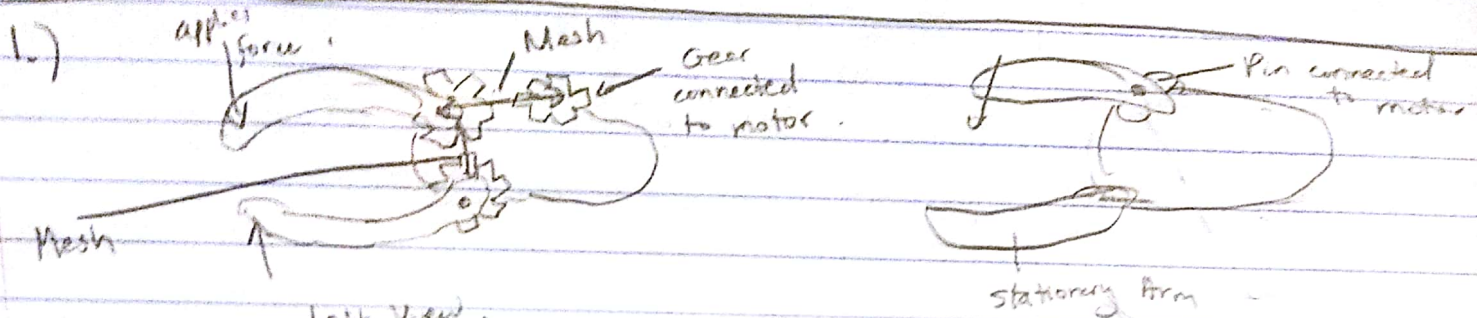 1.)
force.
Mesh
Gear
connected
to motor.
Mesh
Pin connected
to motor
Stationary Arm
View.